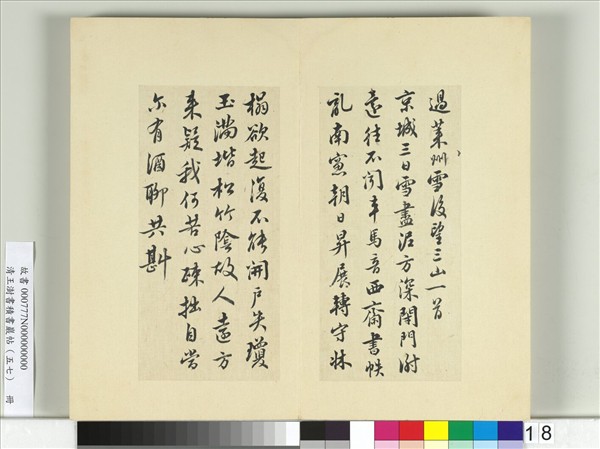 過萊州雪後望三山一首
京城三日雪盡泥方深閉門謝
還往不聞車馬音西齋書帙
亂南窻朝日昇展轉守牀
榻欲起復不能開戶失瓊
玉滿堦松竹陰故人遠方
來疑我何苦心疎拙自當
尔有酒聊共斟
故書 000777N000000000
清王澍書積書巖帖（五七） 冊
18